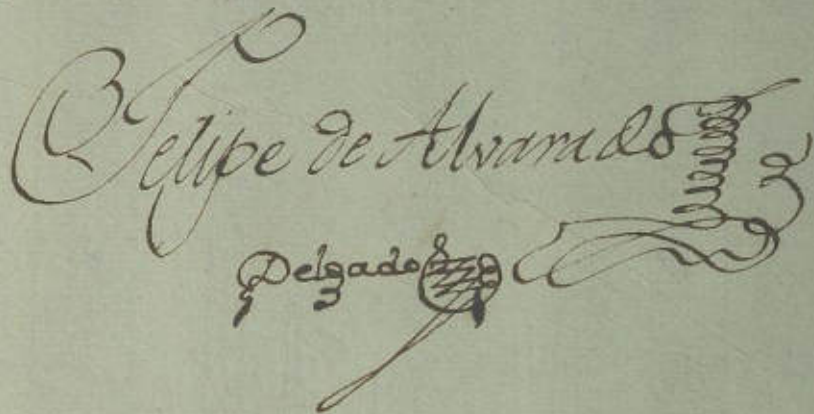 Felipe de Alvarado
Delgado